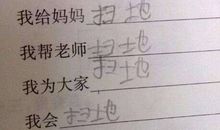 我给妈妈 扫地
我帮老师 扫地
我为大家 扫地
我会 扫地